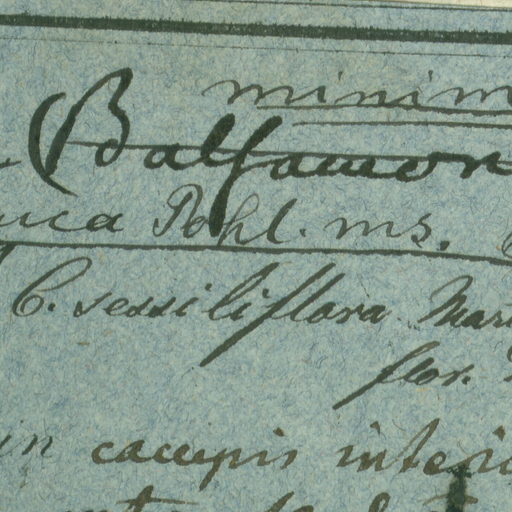 minim
Balsamon
uca Pohl. ms.
C. sessiliflora Mar
flor.
in campis interi